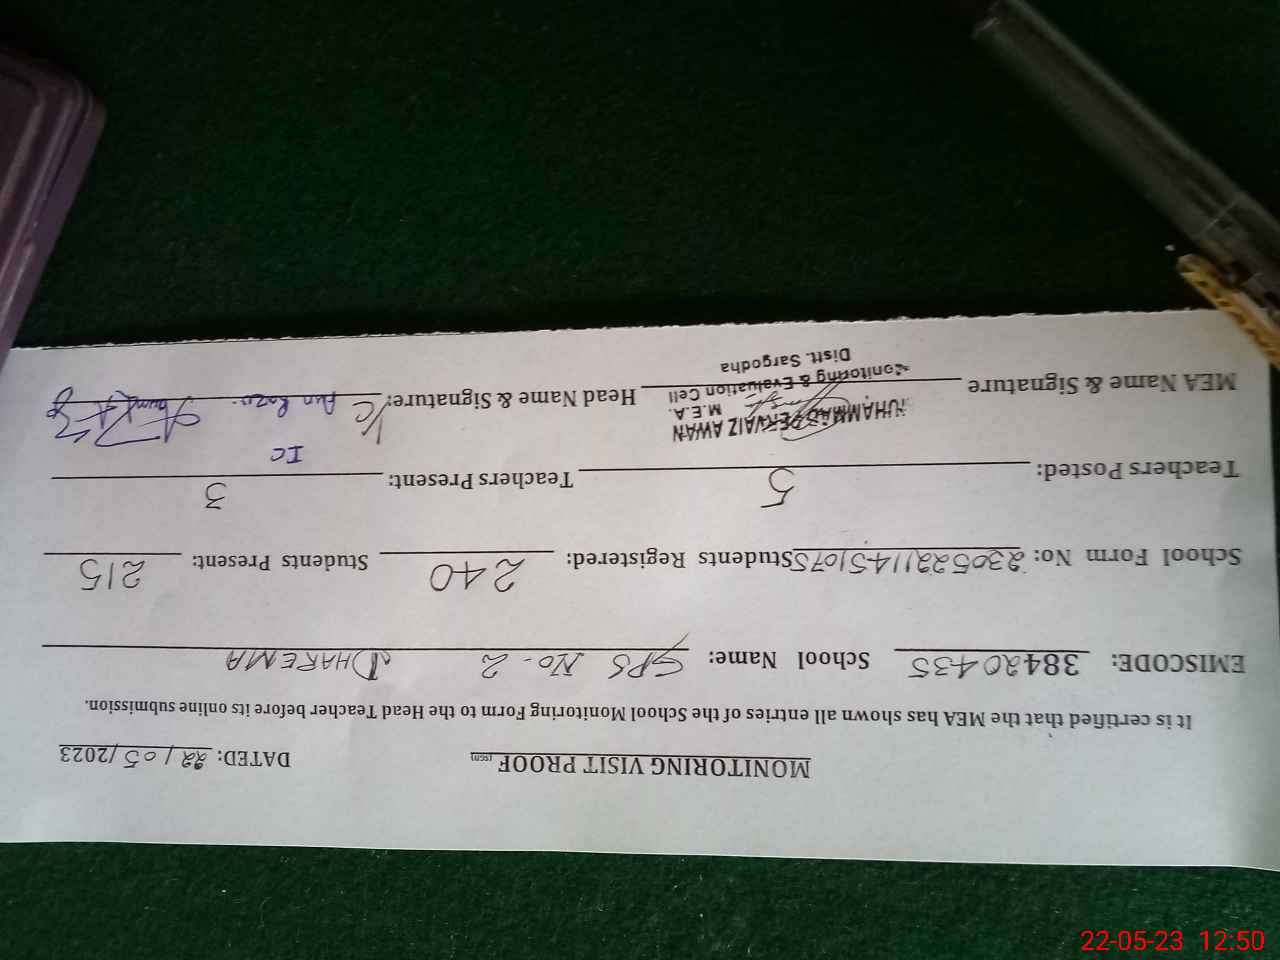 MONITORING VISIT PROOF (SED) DATED: 22/05/2023
It is certified that the MEA has shown all entries of the School Monitoring Form to the Head Teacher before its online submission.
EMISCODE: 38420435 School Name: GPS No-2 DHAREMA
School Form No: Students Registered: 240 Students Present: 215
Teachers Posted: 5 Teachers Present: 3
MEA Name & Signature Head Name & Signature: I/C
IC
MUHAMMAD PERVAIZ AWAN
M.E.A.
Monitoring & Evaluation Cell
Distt. Sargodha
22-05-23 12:50